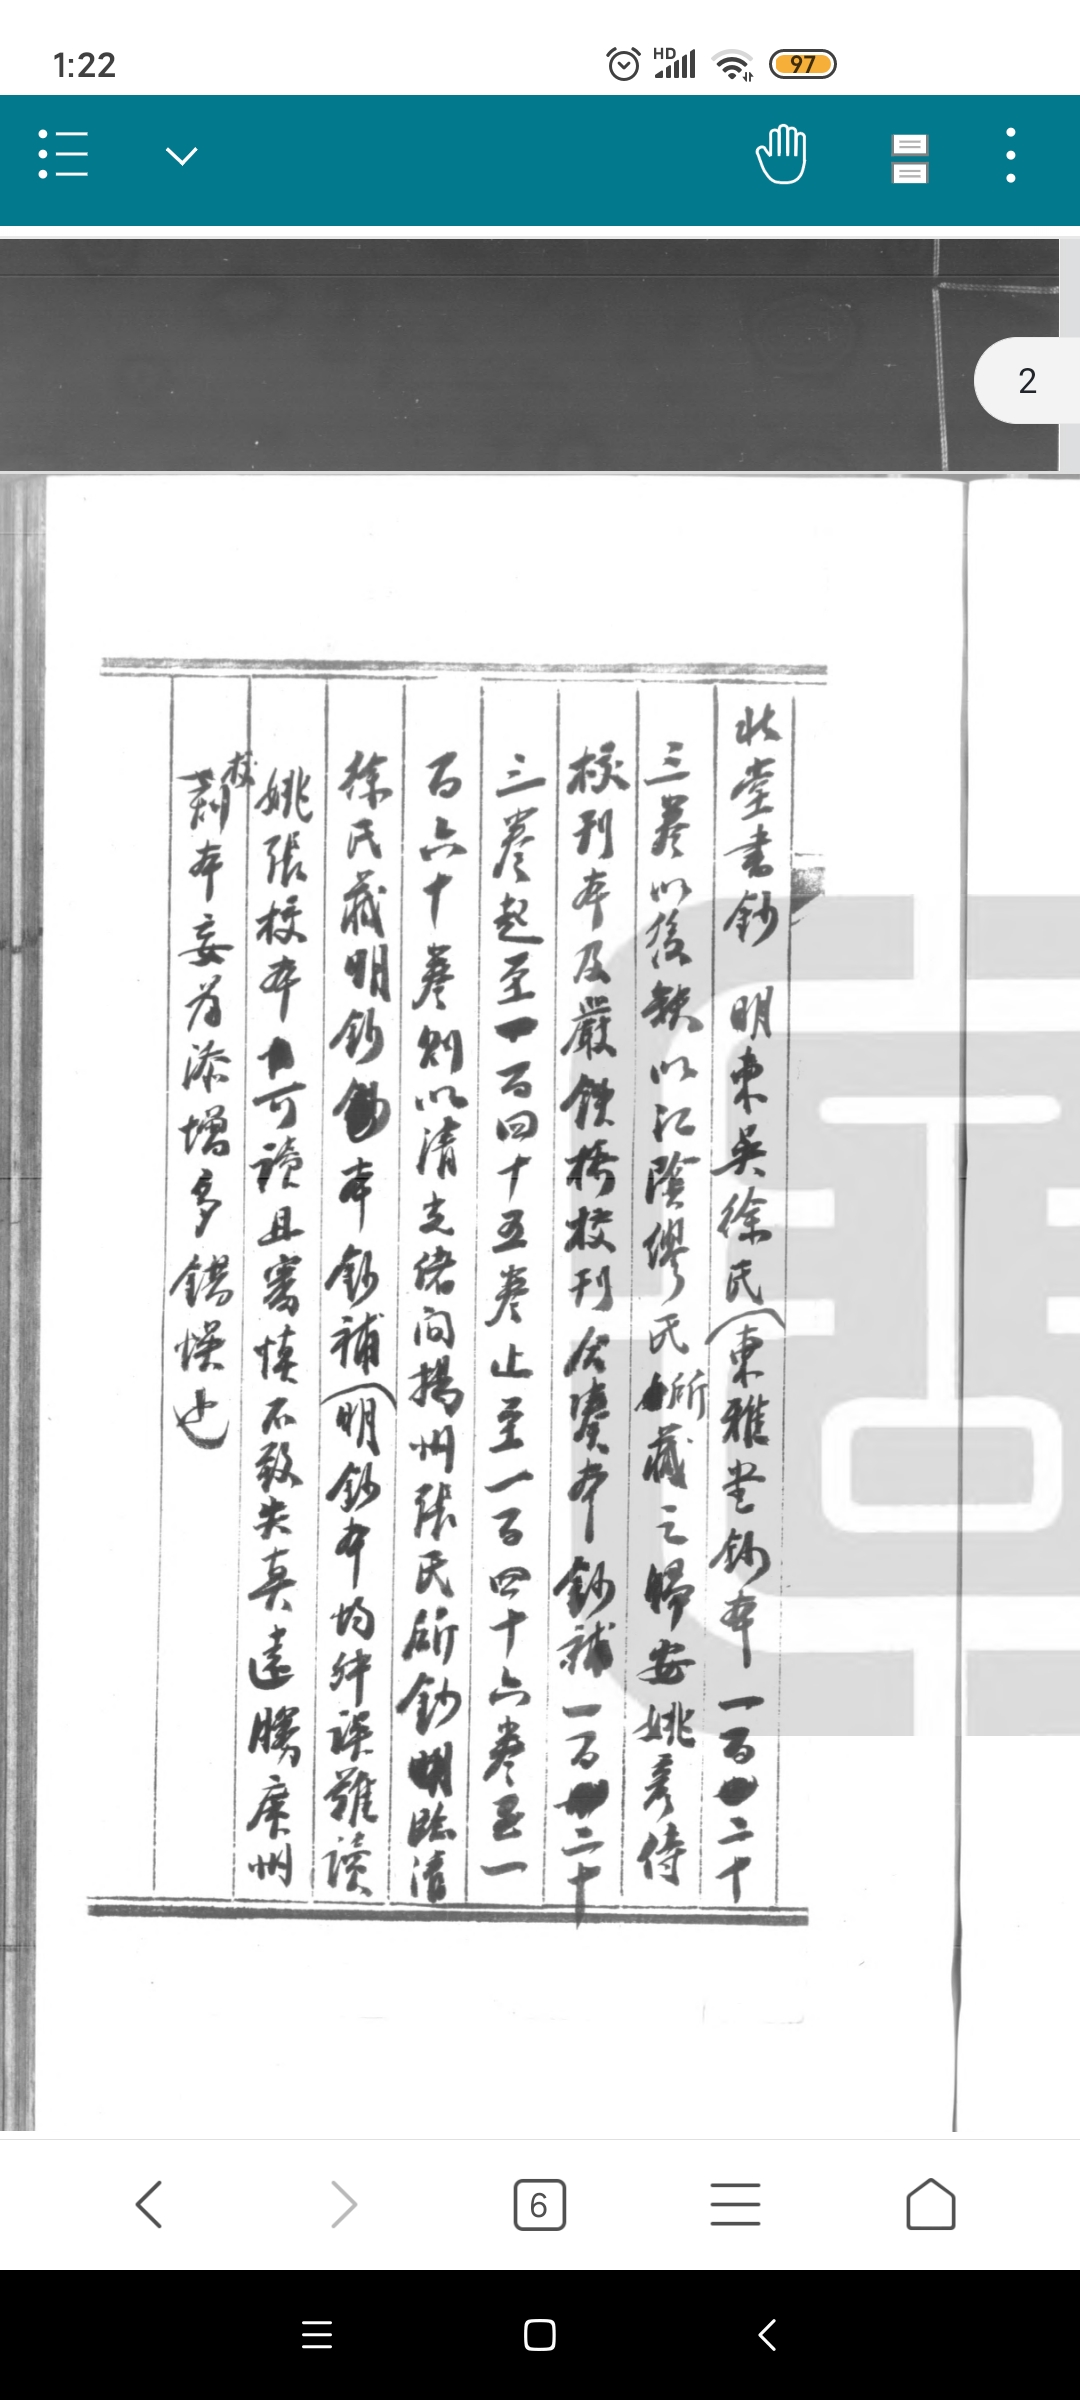 1:22
HD
97
2
北堂書鈔 明東吳徐氏（東雅堂鈔本一百二十
三卷以後缺以江陰繆氏所藏之歸安姚彥侍
校刊本及嚴鐵橋校刊本鈔補一百二十
三卷起至一百四十五卷止至一百四十六卷至一
百六十卷則以清光緒間揚州張氏所鈔明臨清
徐氏藏明鈔本鈔補（明鈔本均舛誤難讀
姚張校本可讀且審慎不致失真遠勝唐州
校本妄為添增多錯誤也）
6